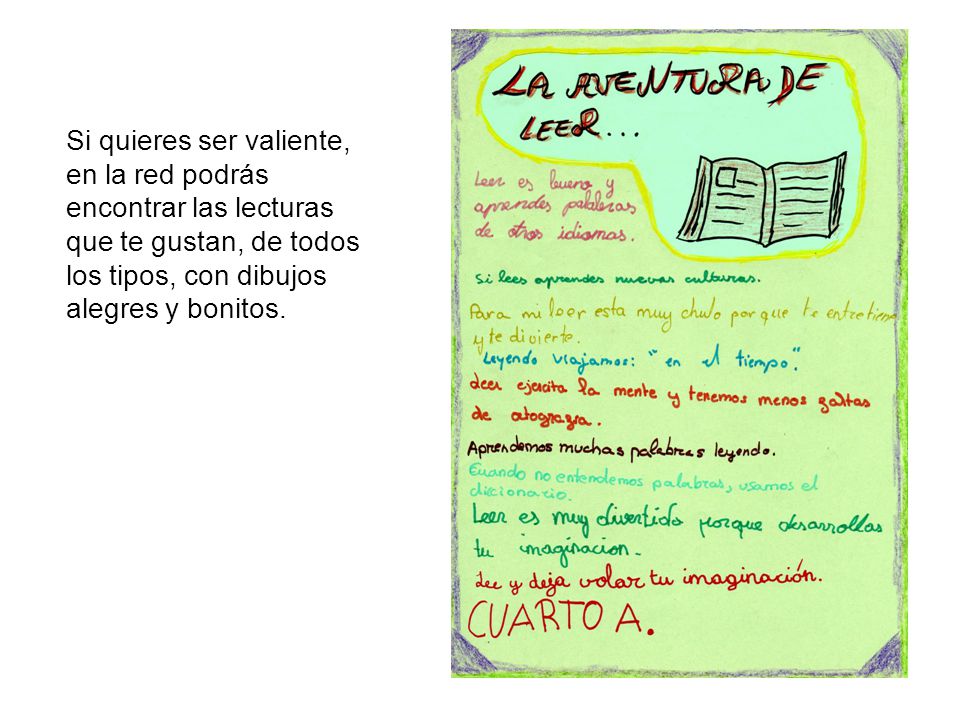 Si quieres ser valiente,
en la red podrás
encontrar las lecturas
que te gustan, de todos
los tipos, con dibujos
alegres y bonitos.
LA AVENTURA DE
LEER...
Leer es bueno y
aprendes palabras
de otros idiomas.
Si lees aprendes nuevas culturas.
Para mi leer esta muy chulo por que te entretiene
y te divierte.
Leyendo viajamos: "en el tiempo".
Leer ejercita la mente y tenemos menos faltas
de otografia.
Aprendemos muchas palabras leyendo.
Cuando no entendemos palabras, usamos el
diccionario.
Leer es muy divertido porque desarrollas
tu imaginacion.
Lee y deja volar tu imaginación.
CUARTO A.